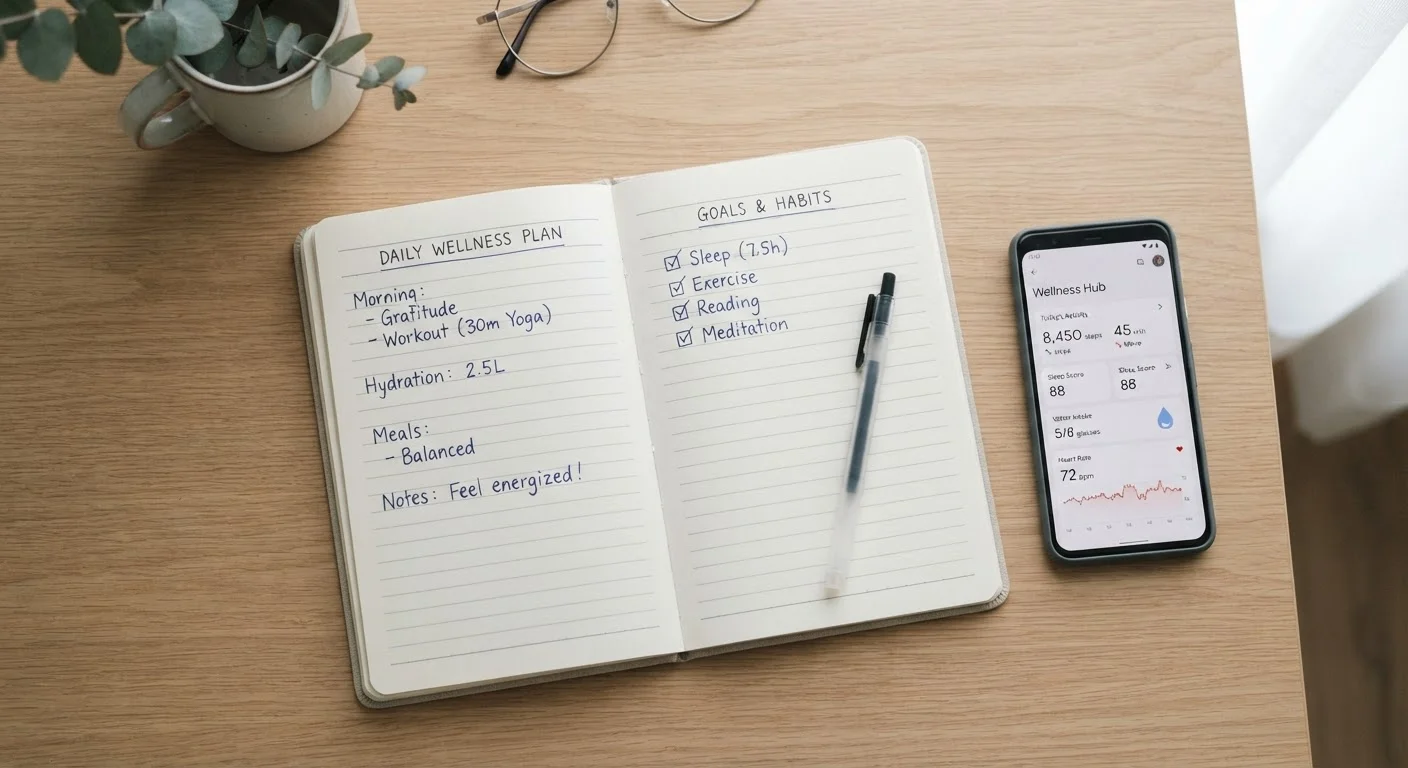 DAILY WELLNESS PLAN
Morning:
- Gratitude
- Workout (30m Yoga)
Hydration: 2.5L
Meals:
- Balanced
Notes: Feel energized!
GOALS & HABITS
Sleep (7.5h)
Exercise
Reading
Meditation
Wellness Hub
8,450 steps 45
Sleep Score
88
88
5/8 glasses
Heart Rate
72 bpm